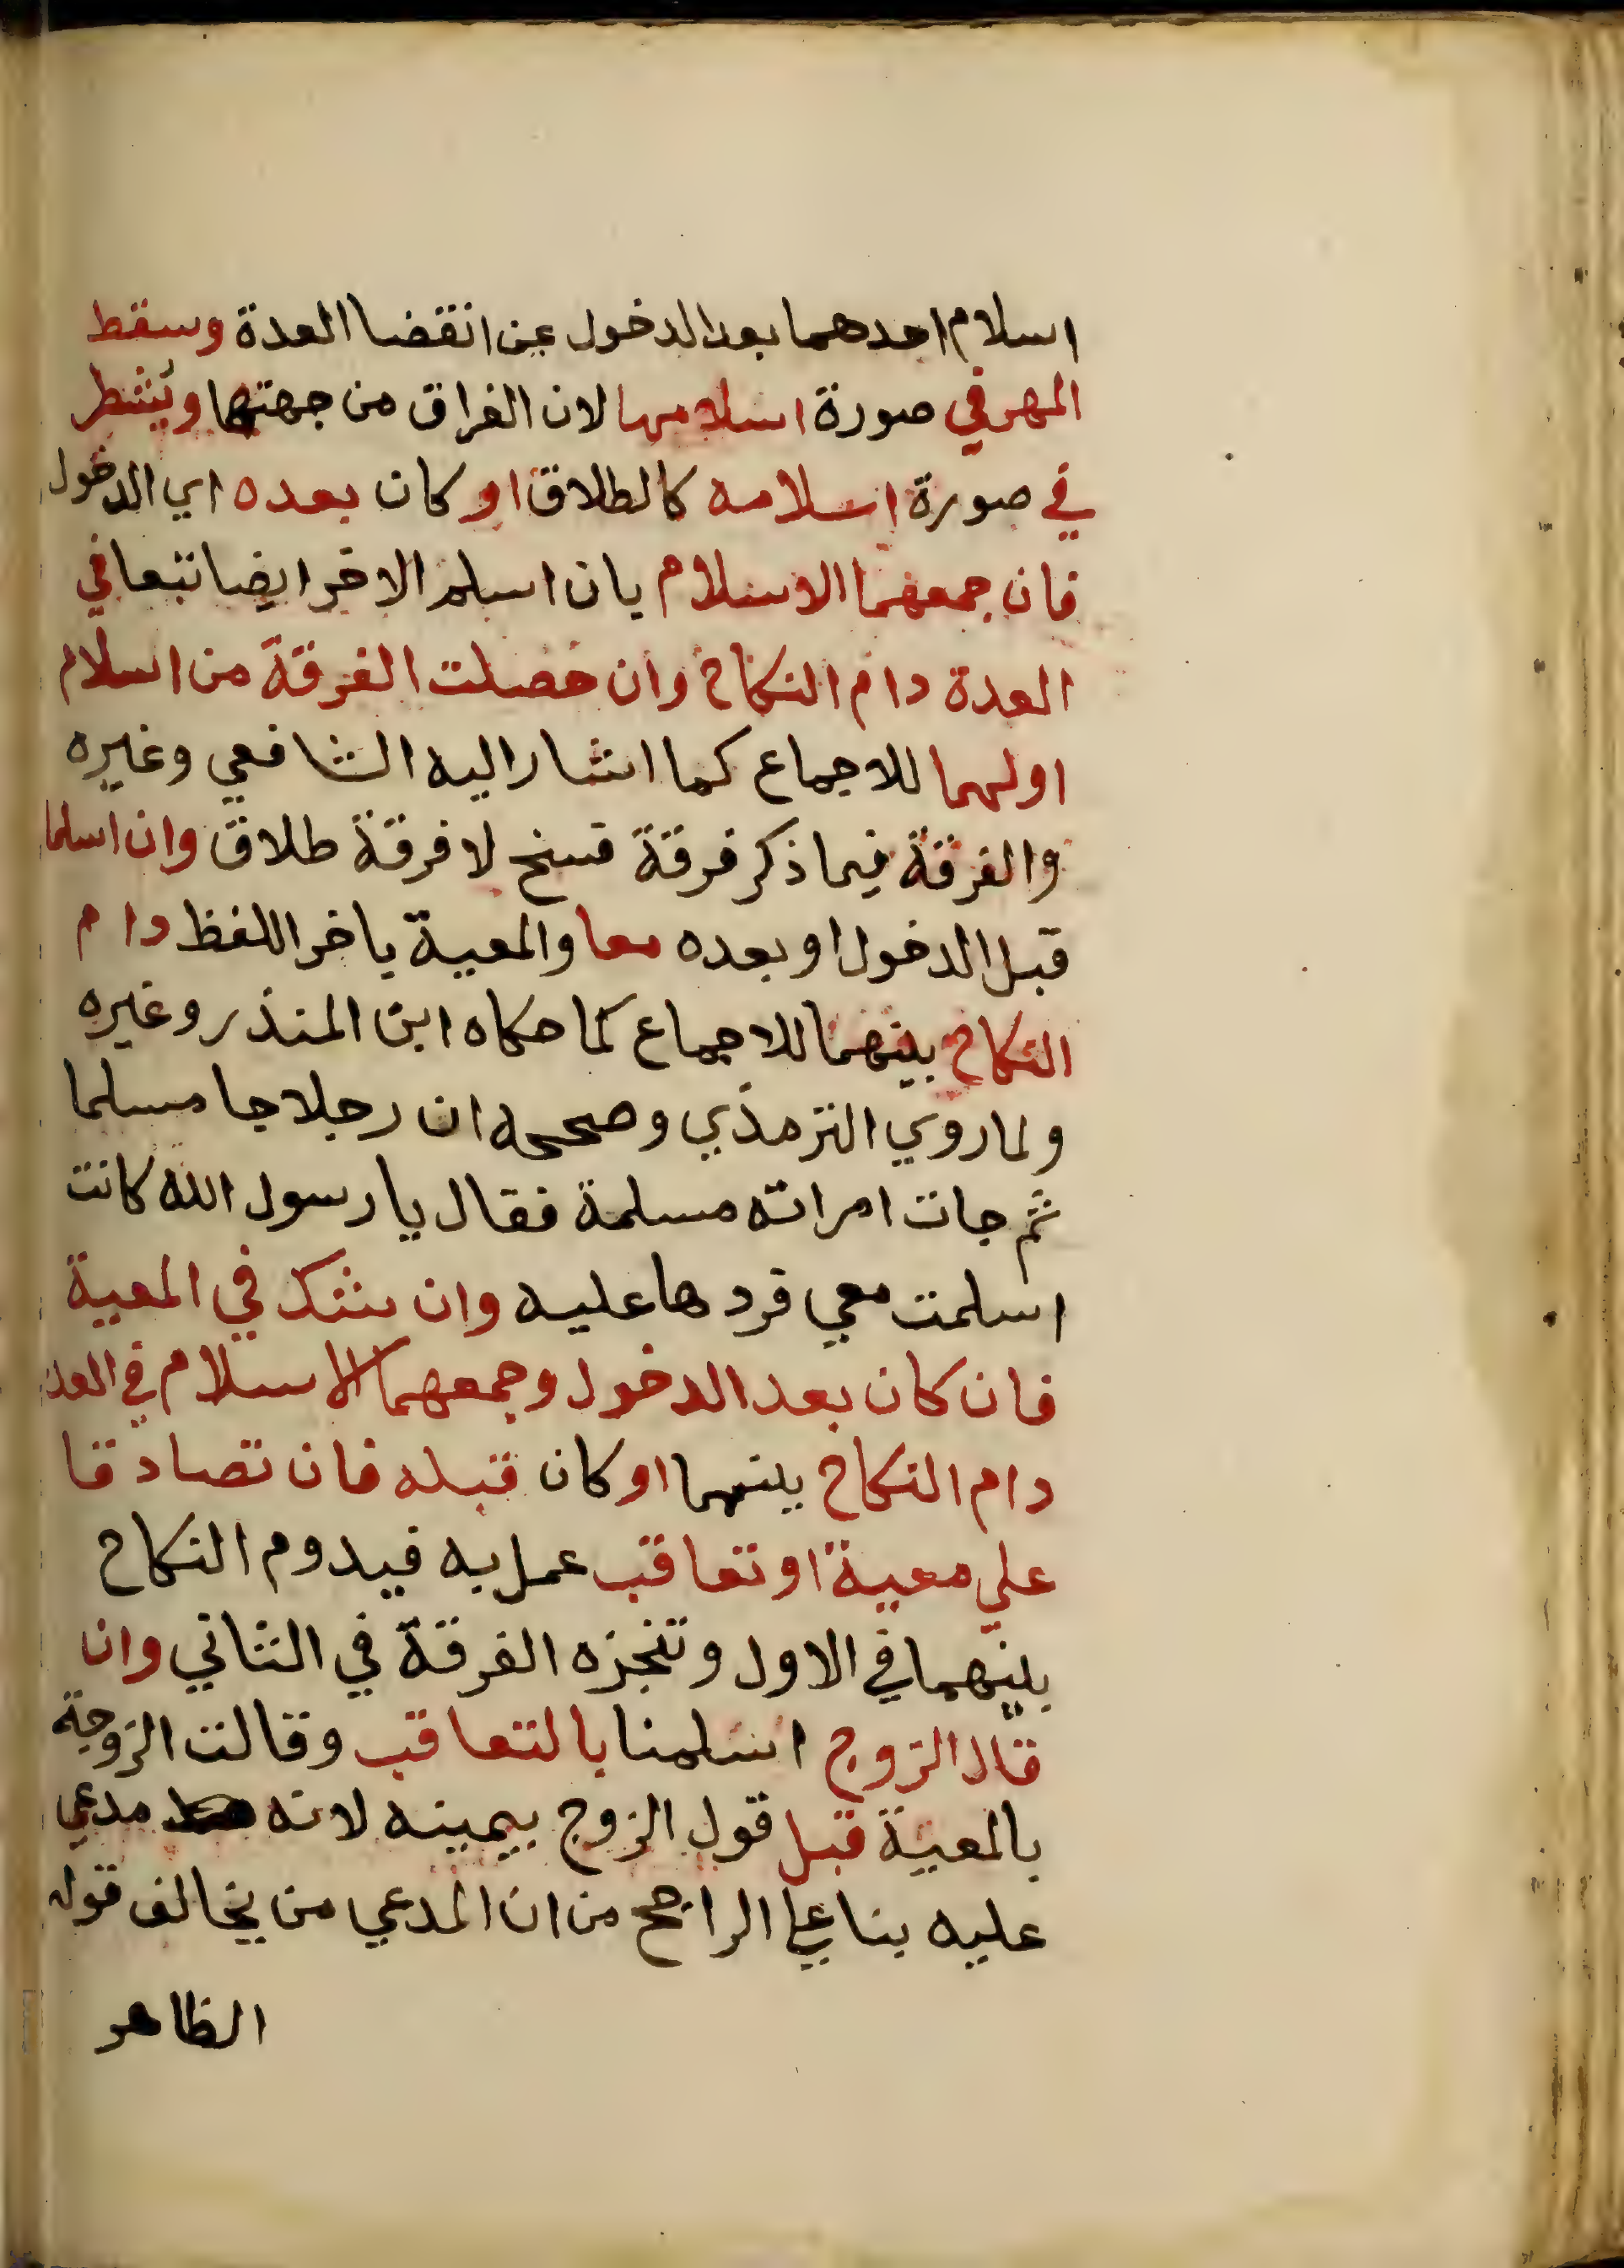 اسلام احدهما بعد الدخول عن انقضا العدة وسقط
المهر في صورة اسلامها لان الفراق من جهتها ويشطر
في صورة اسلامه كالطلاق او كان بعده اي الدخول
فان جمعهما الاسلام بان اسلم الاخر ايضا تبعا في
العدة دام النكاح وان حصلت الفرقة من اسلام
اولهما للاجماع كما اشار اليه الشافعي وغيره
والفرقة فيما ذكر فرقة فسخ لا فرقة طلاق وان اسلما
قبل الدخول او بعده معا والمعية باخر اللفظ دام
النكاح بينهما للاجماع كما حكاه ابن المنذر وغيره
ولما روي الترمذي وصححه ان رجلا جا مسلما
ثم جات امراته مسلمة فقال يا رسول الله كانت
اسلمت معي فردها عليه وان شك في المعية
فان كان بعد الدخول وجمعهما الاسلام في العدة
دام النكاح بينهما او كان قبله فان تصادقا
علي معية او تعاقب عمل به فيدوم النكاح
بينهما في الاول وتنجزه الفرقة في الثاني وان
قال الزوج اسلمنا بالتعاقب وقالت الزوجة
بالمعية قبل قول الزوج بيمينه لانه مدعي
عليه بنا علي الراجح من ان المدعي من يخالف قوله
الظاهر